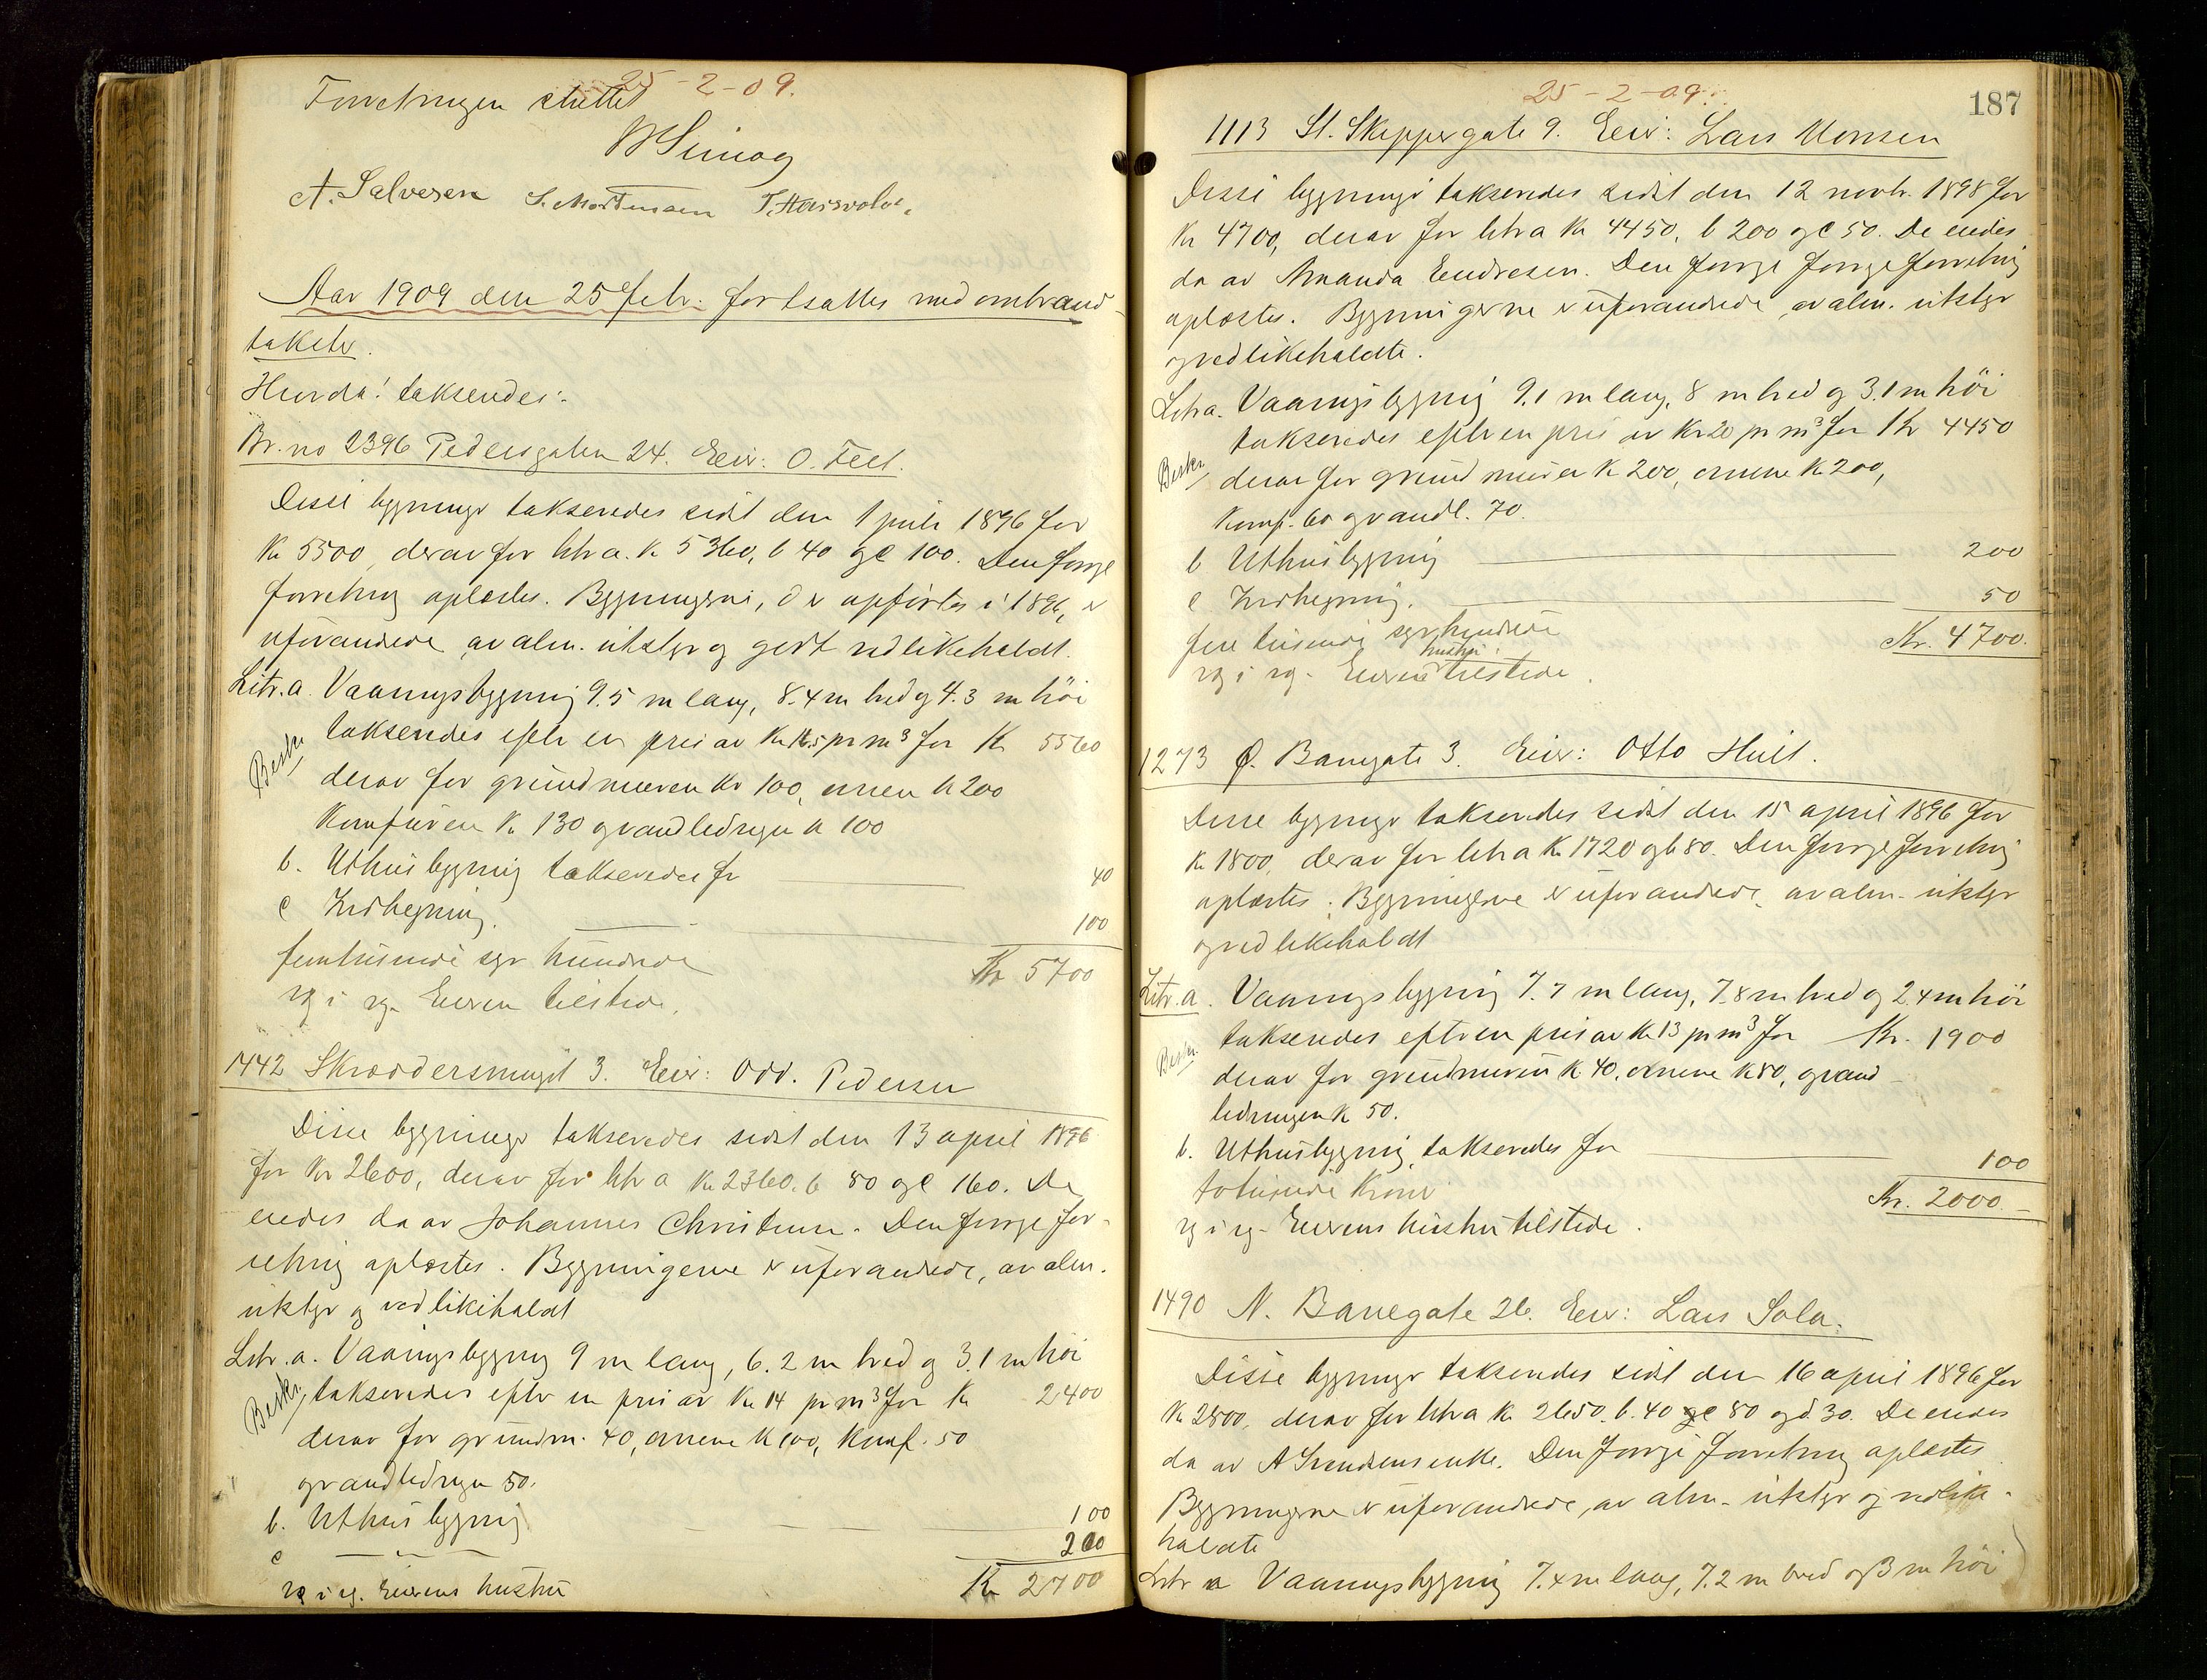 25-2-09.
Forretningen sluttet
A. Salvesen S. Mortensen
Aar 1909 den 25 febr. fortsattes med ombrand-
takster.
Hvorda! takseredes:
Br. no 2396 Pedersgaten 24. Eier: O. Teel.
Disse bygninger takseredes sidst den 1 juli 1896 for
Kr 5500, derav for litra a. Kr 5360, b 40 og c 100. Den forrige
forretning oplæstes. Bygningerne, d er opførtes i 1896, er
uforandrede, av alm. utstyr og godt vedlikeholdt.
Litr. a. Vaaningsbygning 9.5 m lang, 8.4 m bred og 4.3 m höi
takseredes efter en pris av Kr 16.5 pr m³ for Kr 5560
Beskr.
derav for grundmuren Kr 100, ovnen Kr 200
Komfüren Kr 130 og vandledningen Kr 100
b. Uthusbygning takseredes for 40
c Indhegning. 100
femtusinde syv hundrede Kr 5700
rg i rg. Eieren tilstede.
1442 Skræddersmuget 3. Eier: Odd. Pedersen
Disse bygninger takseredes sidst den 13 april 1896
for Kr 2600, derav for litr a Kr 2360. b 80 og c 160. De
eiedes da av Johannes Christensen. Den forrige for-
retning oplæstes. Bygningerne er uforandrede, av alm.
utstyr og vedlikeholdt
Litr. a. Vaaningsbygning 9 m lang, 6.2 m bred og 3.1 m höi
Beskr.
takseredes efter en pris av Kr 14 pr m³ for Kr 2400
derav for grundm. 40, ovnene Kr 100, Komf. 50
og vandledningen 50.
b. Uthusbygning 100
c 200
rg i rg. Eierens hustru Kr 2700
25-2-09.
187
1113 St. Skippergate 9. Eier: Lars Monsen
Disse bygninger takseredes sidst den 12 novbr. 1898 for
Kr 4700, derav for litra Kr 4450, b 200 og c 50. De eiedes
da av Amanda Endresen. Den forrige forretning
oplæstes. Bygningerne er uforandrede, av alm. utstyr
og vedlikeholdte.
Litra. Vaaningsbygning 9.1 m lang, 8 m bred og 3.1 m höi
takseredes efter en pris av Kr 20 pr m³ for Kr 4450
Beskr.
derav for grundmuren Kr 200, ovnene Kr 200,
Komf. 60 og vandl. 70.
b Uthusbygning 200
c Indhegning. 50
fire tusinde syv hundrede Kr. 4700.
rg i rg. Eierens hustru tilstede.
1273 Ø. Banegate 3. Eier: Otto Hult.
Disse bygninger takseredes sidst den 15 april 1896 for
Kr 1800, derav for litr a Kr 1720 og b 80. Den forrige forretning
oplæstes. Bygningerne er uforandrede, av alm. utstyr
og vedlikeholdt
Litr. a. Vaaningsbygning 7.7 m lang, 7.8 m bred og 2.4 m höi
takseredes efter en pris av Kr 13 pr m³ for Kr. 1900
Beskr.
derav for grundmuren Kr 40, ovnene Kr 80, og vand-
ledningen Kr 50.
b. Uthusbygning, takseredes for 100
totusinde Kroner Kr. 2000.-
rg i rg. Eierens hustru tilstede.
1490 N. Banegate 26. Eier: Lars Sola.
Disse bygninger takseredes sidst den 16 april 1896 for
Kr 2800, derav for litr a Kr 2650. b. 40 og c 80 og d. 30. De eiedes
da av A Svendsens enke. Den forrige forretning oplæstes
Bygningerne er uforandrede, av alm. utstyr og vedlike-
holdte
Litr a Vaaningsbygning 7.4 m lang, 7.2 m bred og 3 m höi